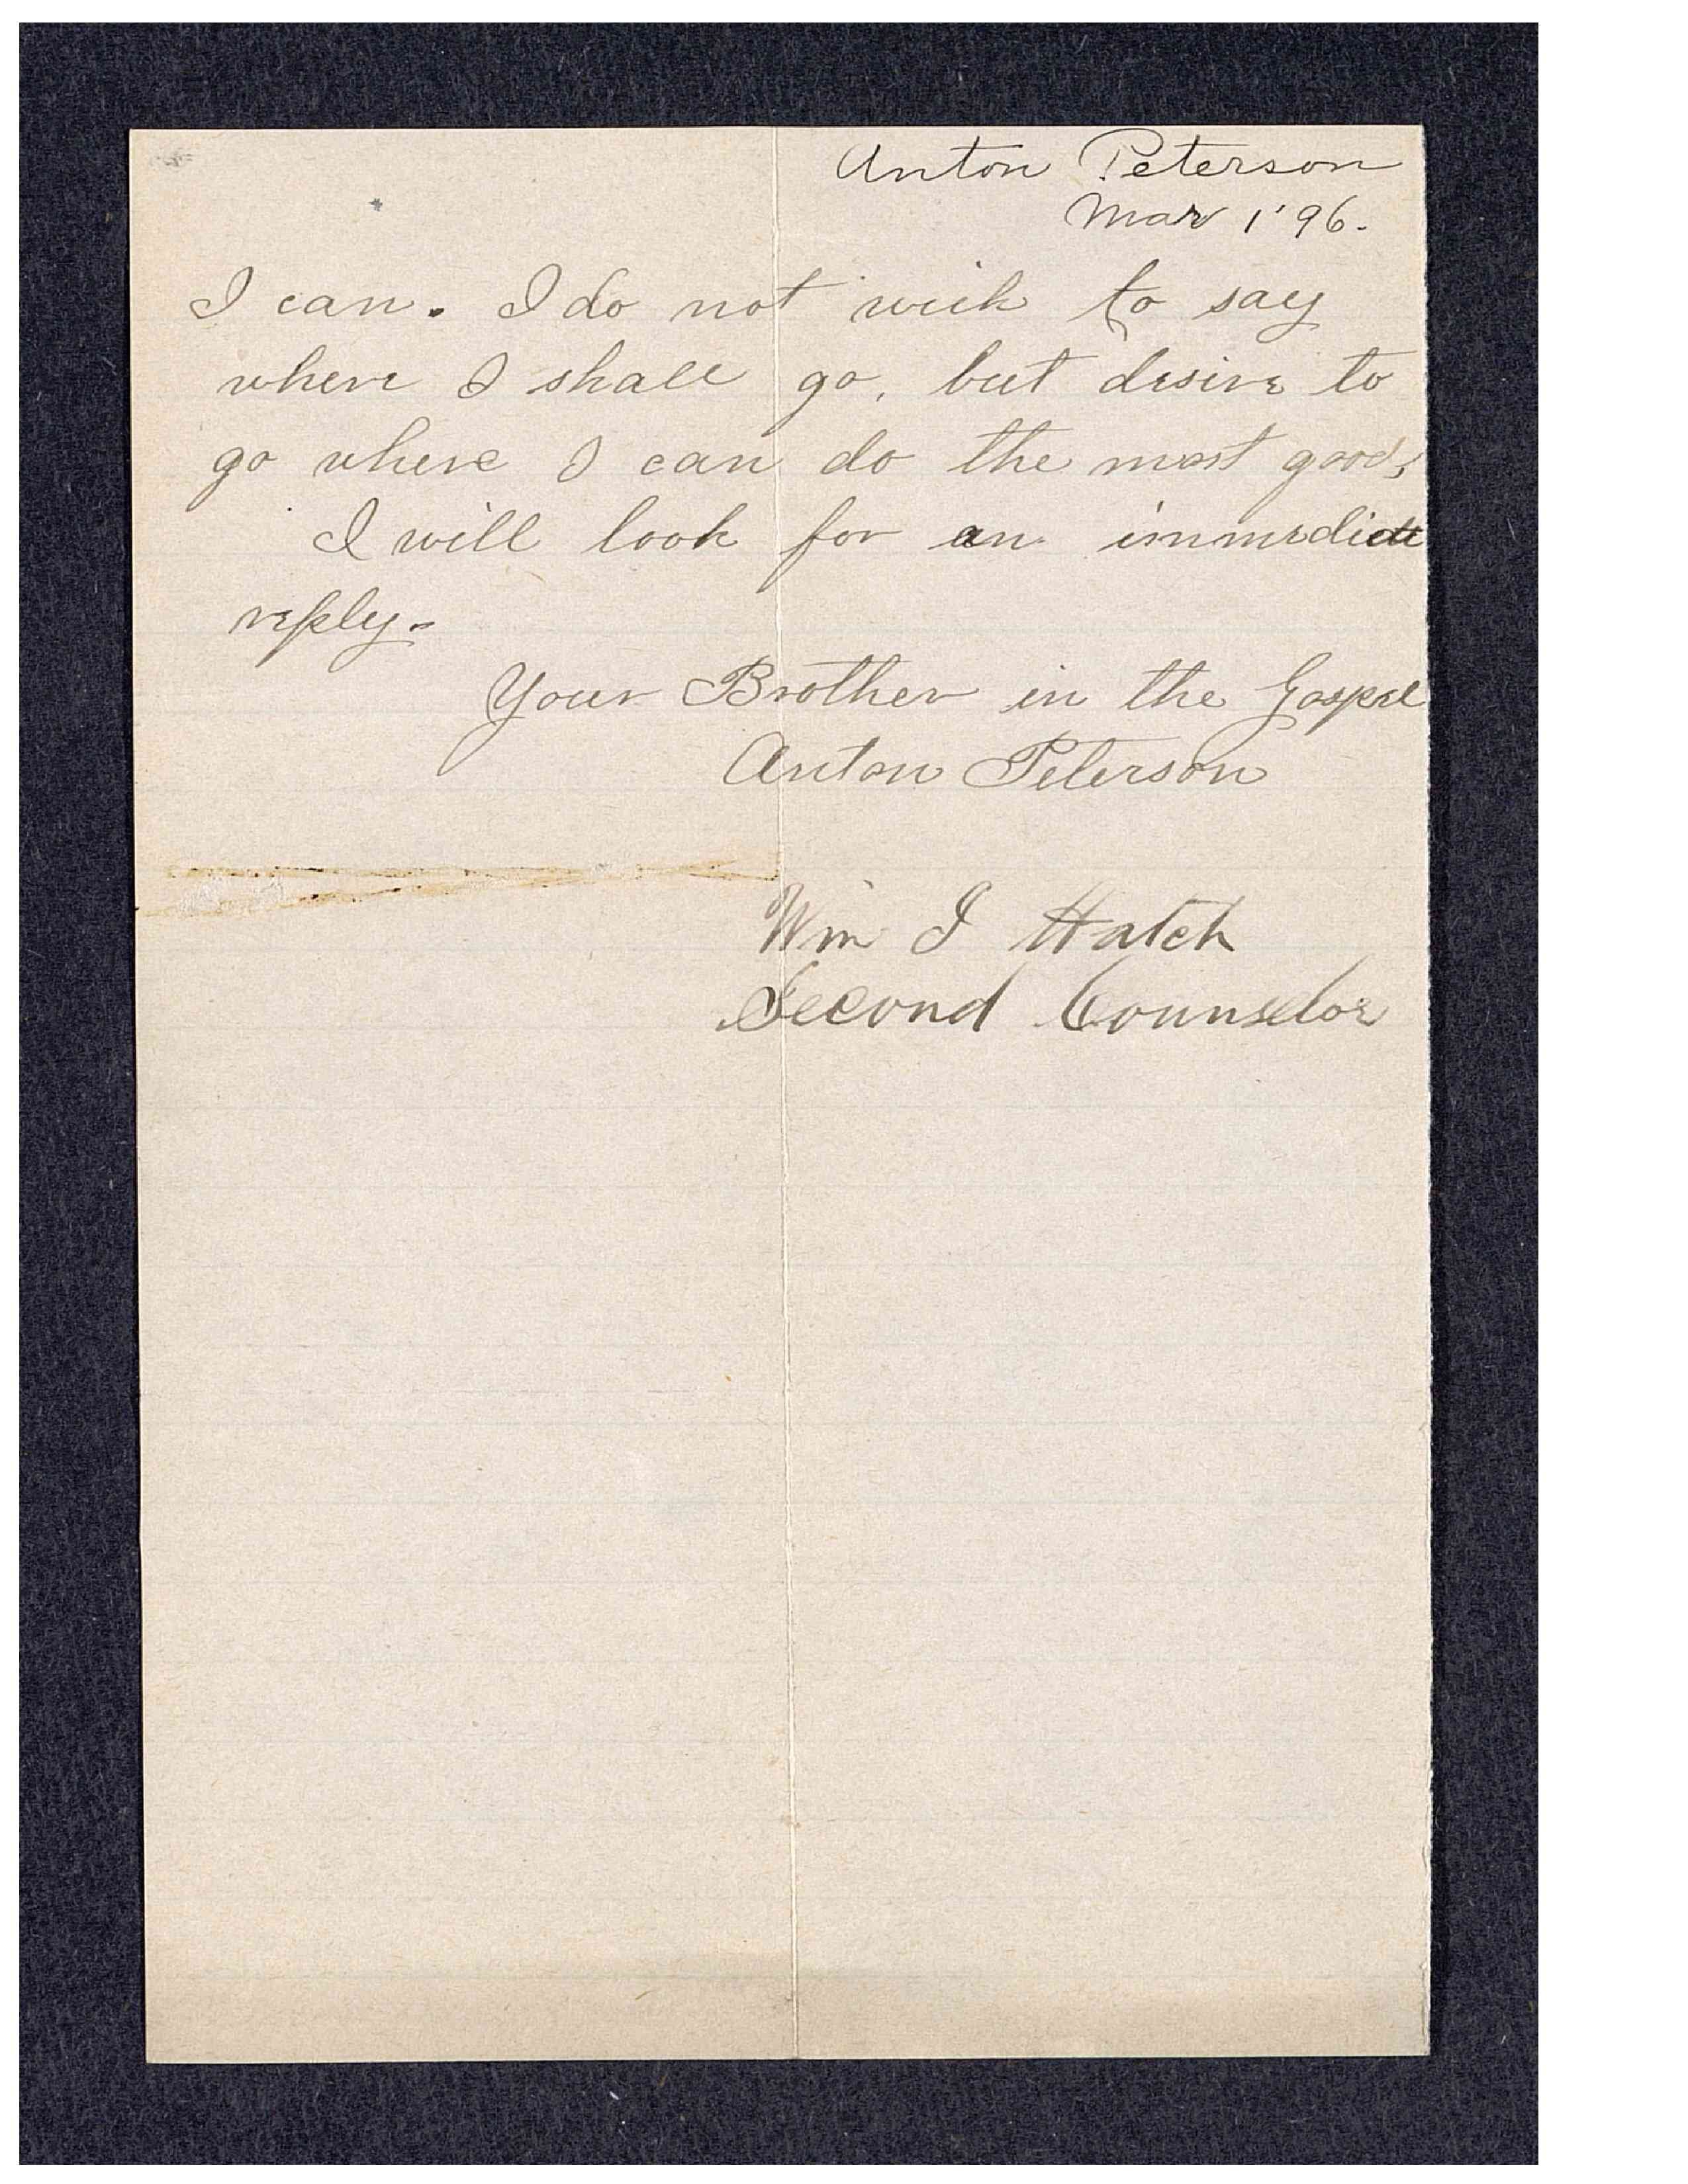 Anton Peterson
Mar 1 '96.
I can. I do not wish to say
where I shall go, but desire to
go where I can do the most good,
I will look for an immediate
reply.
Your Brother in the Gospel
Anton Peterson
Wm I Hatch
Second Counselor